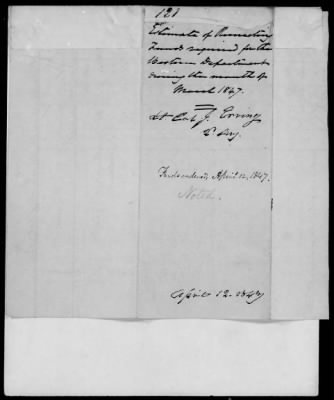 121
Estimate of Recruiting
Funds required for the
Western Department
during the month of
March 1847.
Lt Col J. Erving
2d Arty.
Funds ordered, April 12, 1847.
Noted.
April 12. 1847